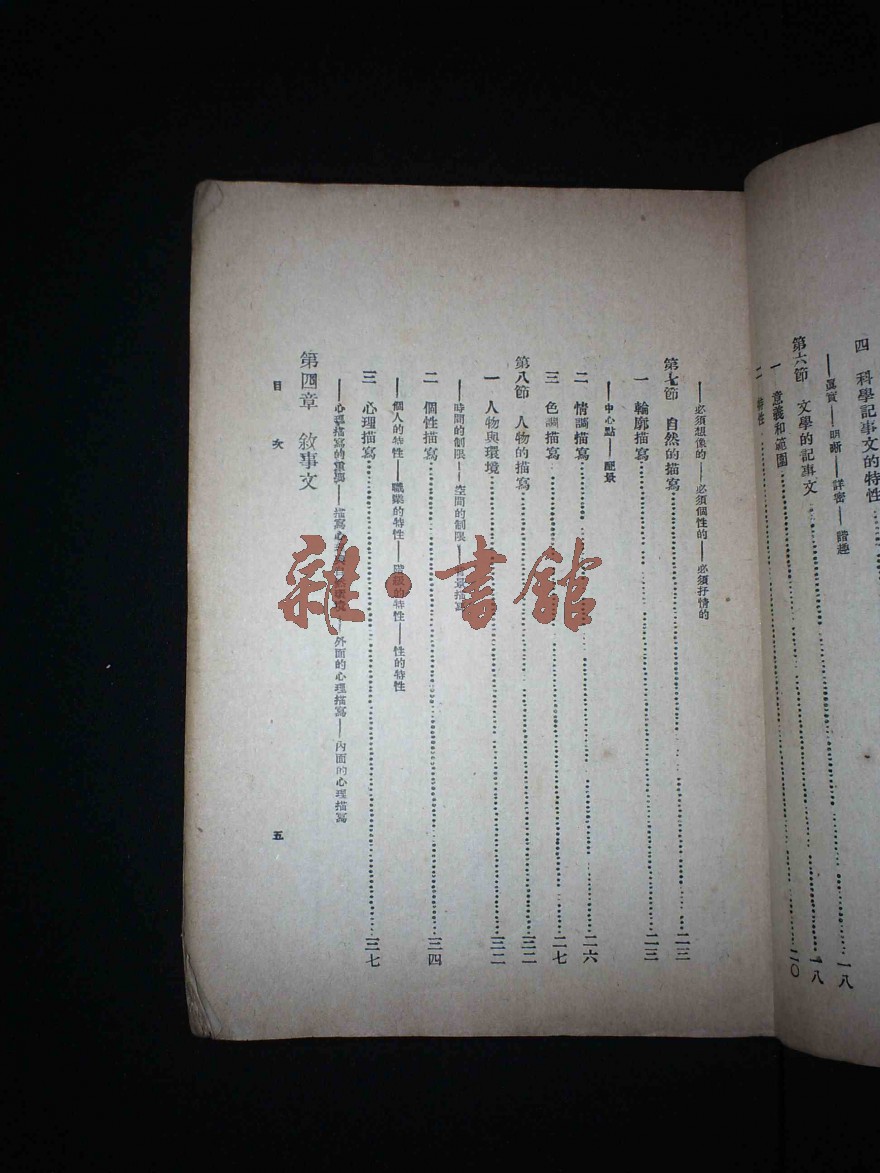 四 科學記事文的特性……一八
——眞實——明晰——詳密——諧趣
第六節 文學的記事文……一八
一 意義和範圍……二〇
二 特性……
——必須想像的——必須個性的——必須抒情的
第七節 自然的描寫……二三
一 輪廓描寫……二三
——中心點——配景
二 情調描寫……二六
三 色調描寫……二七
第八節 人物的描寫……三二
一 人物與環境……三二
——時間的制限——空間的制限——景描寫
二 個性描寫……三四
——個人的特性——職業的特性——階級的特性——性的特性
三 心理描寫……三七
——心理描寫的重要——描寫心——外面的心理描寫——內面的心理描寫
第四章 敘事文
目 次
五
雜·書館